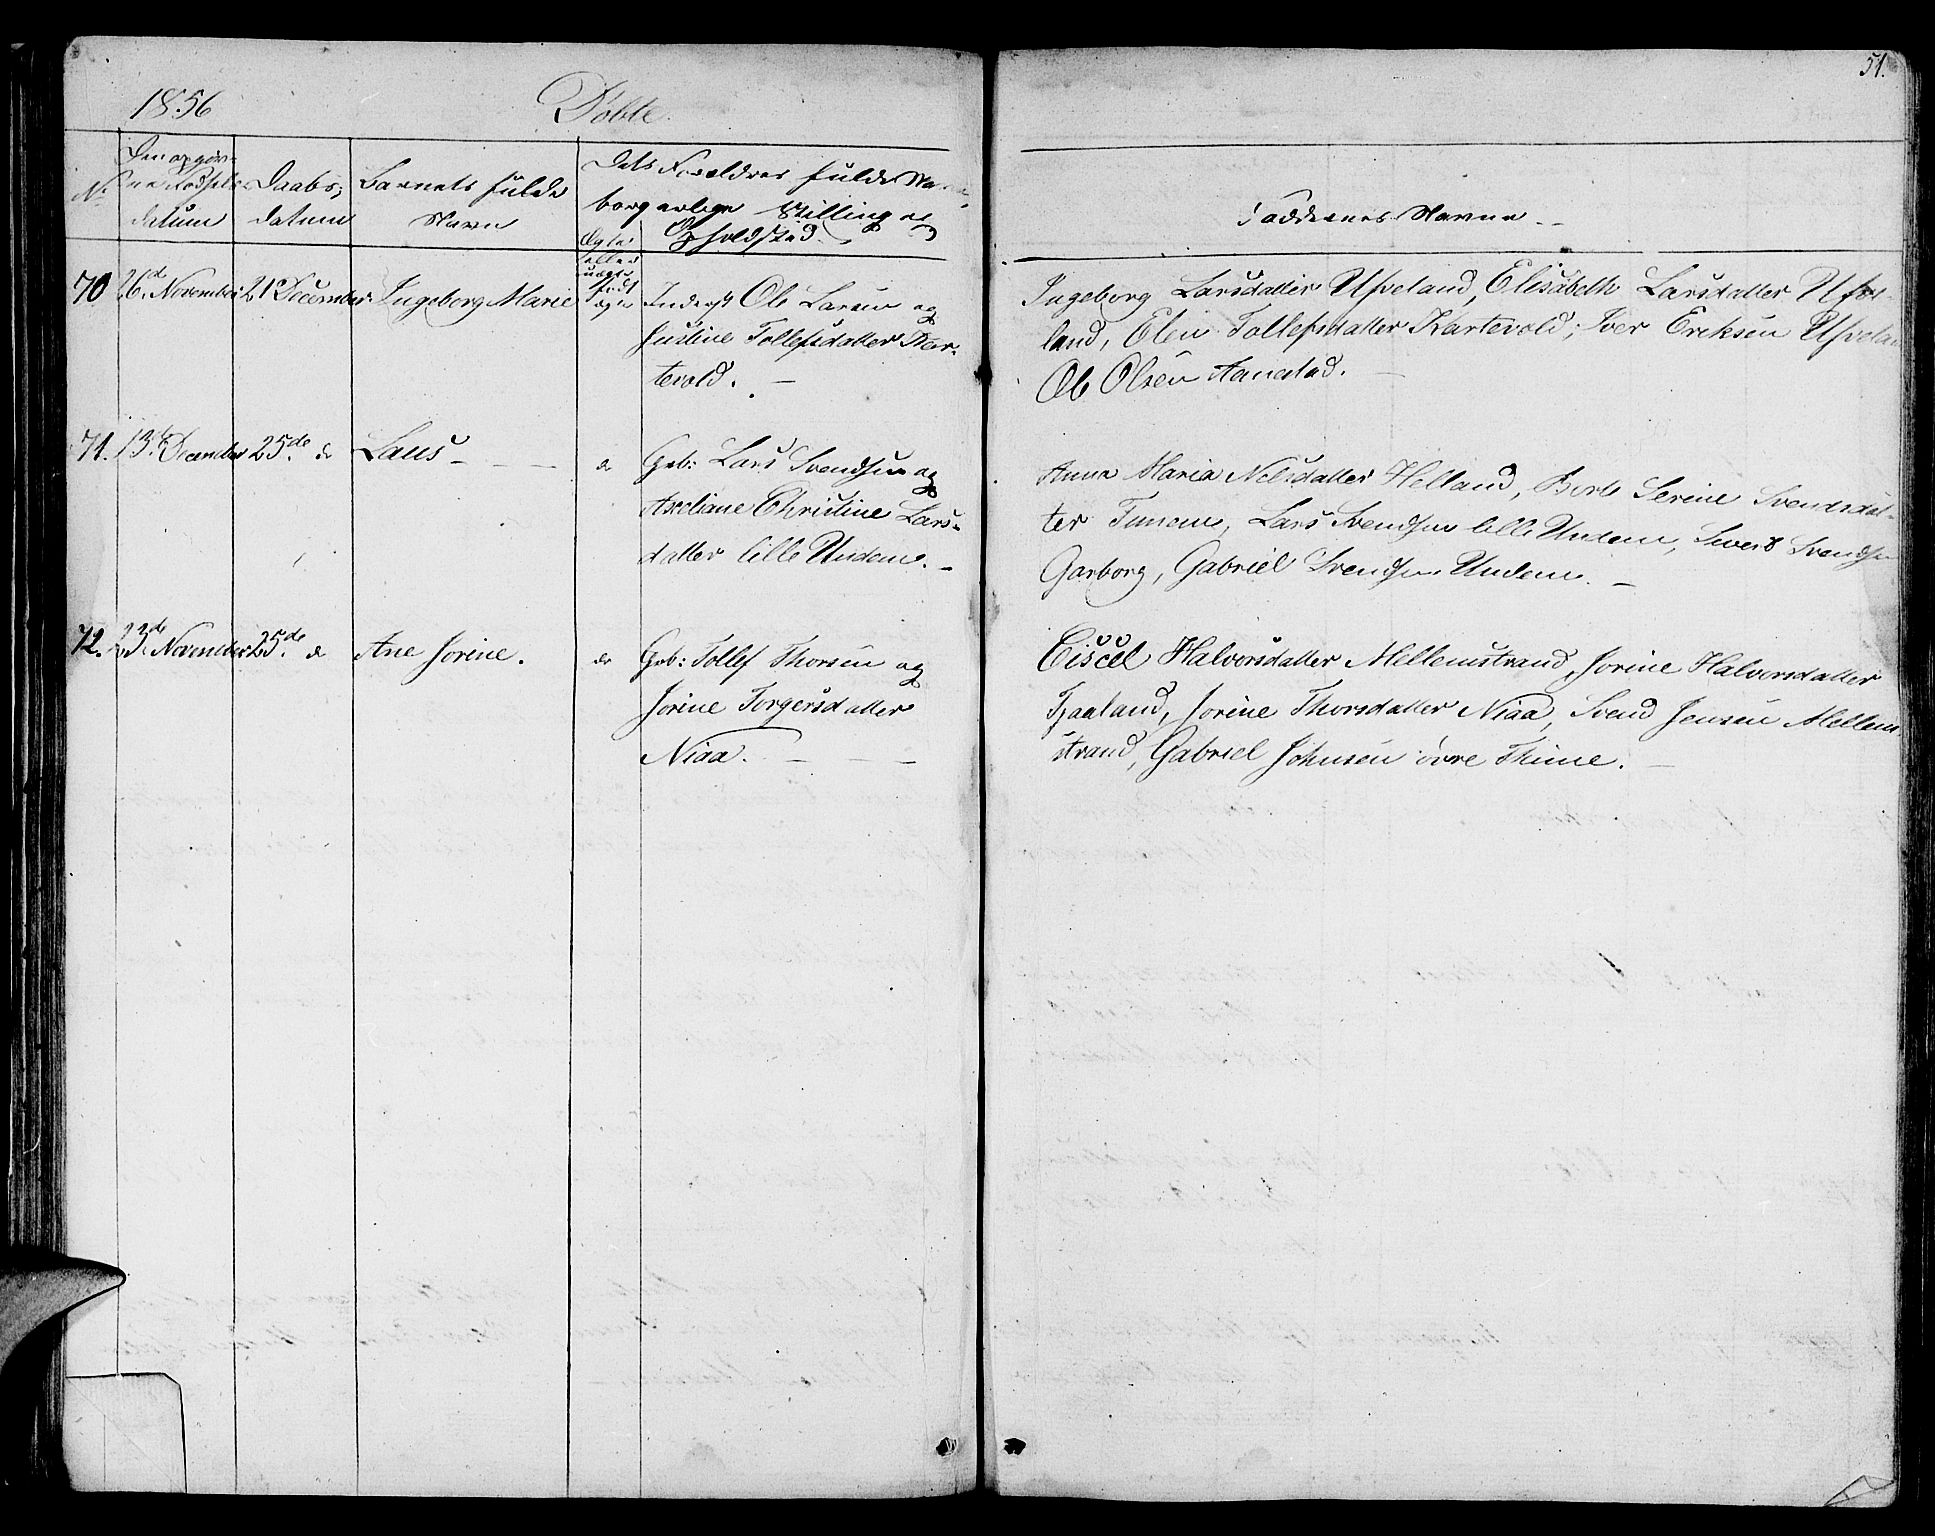 51.
1856 Døbte.
No. Den opgiv-
ne Fødsels-
datum
Daabs-
datum
Barnets fulde
Navn
Dets Forældres fulde Navne,
borgerlige Stilling og
Opholdssted.
Ægte
eller
uægte
født
Faddernes Navne
70 26d. November 21 December Ingeborg Marie ægte Inderst Ole Larsen og
Justine Tollefsdatter Kar-
tevold.
Ingeborg Larsdatter Ufveland, Elisabeth Larsdatter Ufve-
land, Elen Tollefsdatter Kartevold, Iver Ereksen Ufvelan
Ole Olsen Aanestad.
71. 13de December 25de. do Laus do Gb: Lars Svendsen og
Axeliane Christine Lars-
datter lille Undem.
Anna Maria Nelsdatter Helland, Berte Serine Svendsdat-
ter Tunem, Lars Svendsen lille Undem, Sivert Svendsen
Garborg, Gabriel Svendsen Undem.
72. 23de November 25de. do Ane Jorine. do Gb: Tollef Thorsen og
Jorine Torgersdatter
Niaa.
Eiscel Halvorsdatter Mellemstrand, Jorine Halvorsdatter
Tjaaland, Jorine Thorsdatter Niaa, Svend Jensen Mellem
strand, Gabriel Johnsen övre Thime.